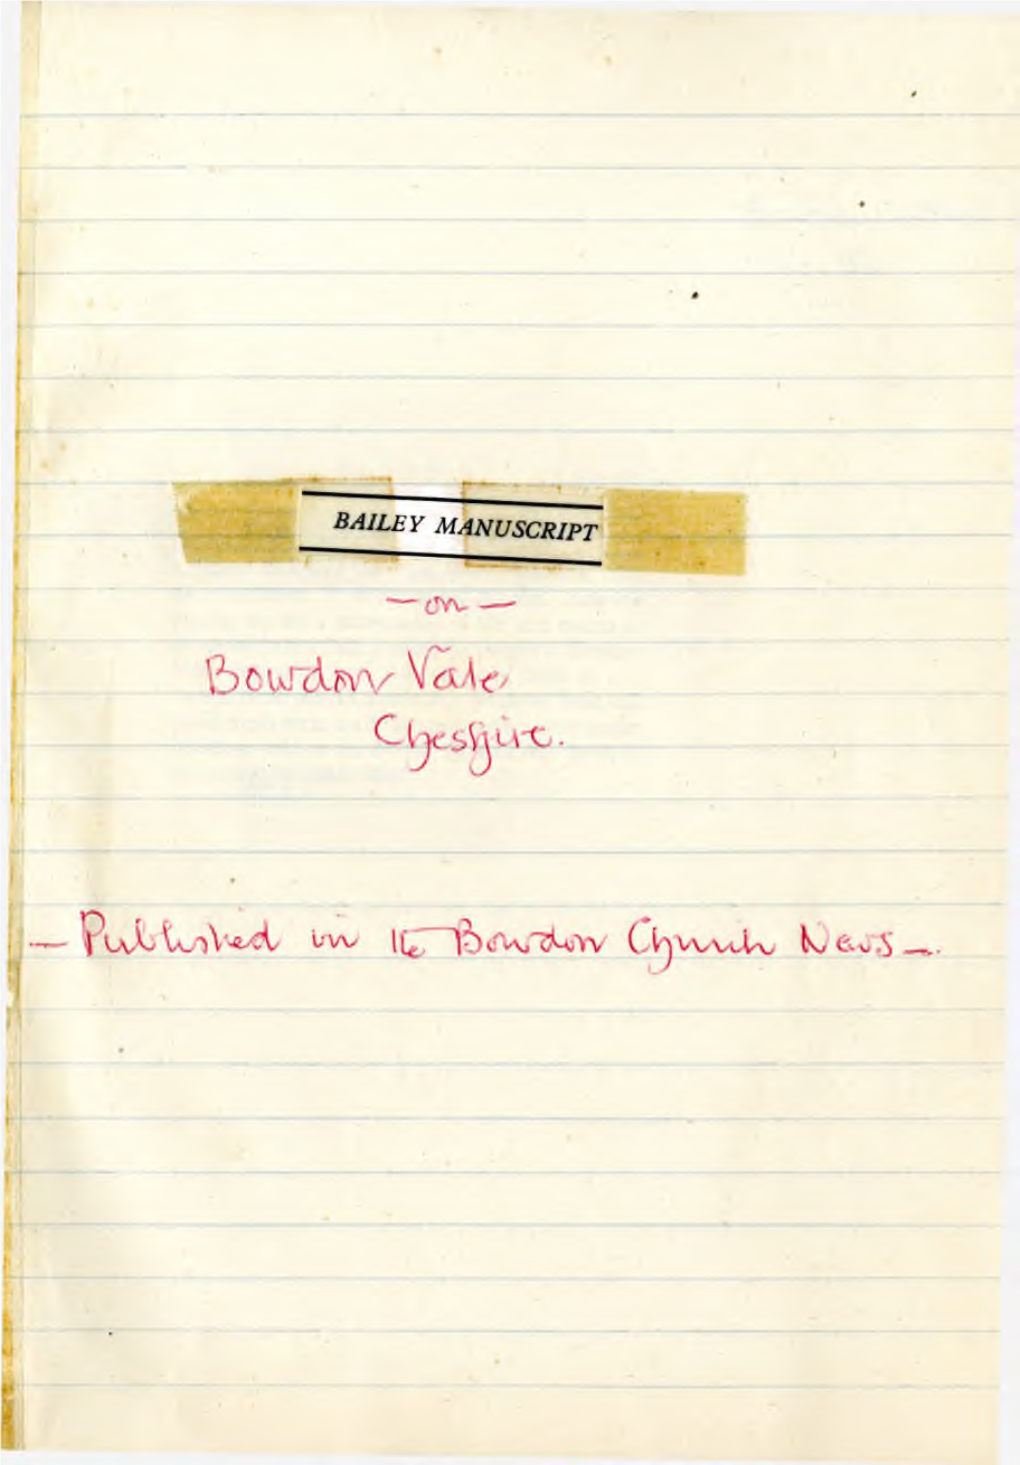 BAILEY MANUSCRIPT
— on —
Bowdon Vale,
Cheshire.
— Published in the Bowdon Church News —.